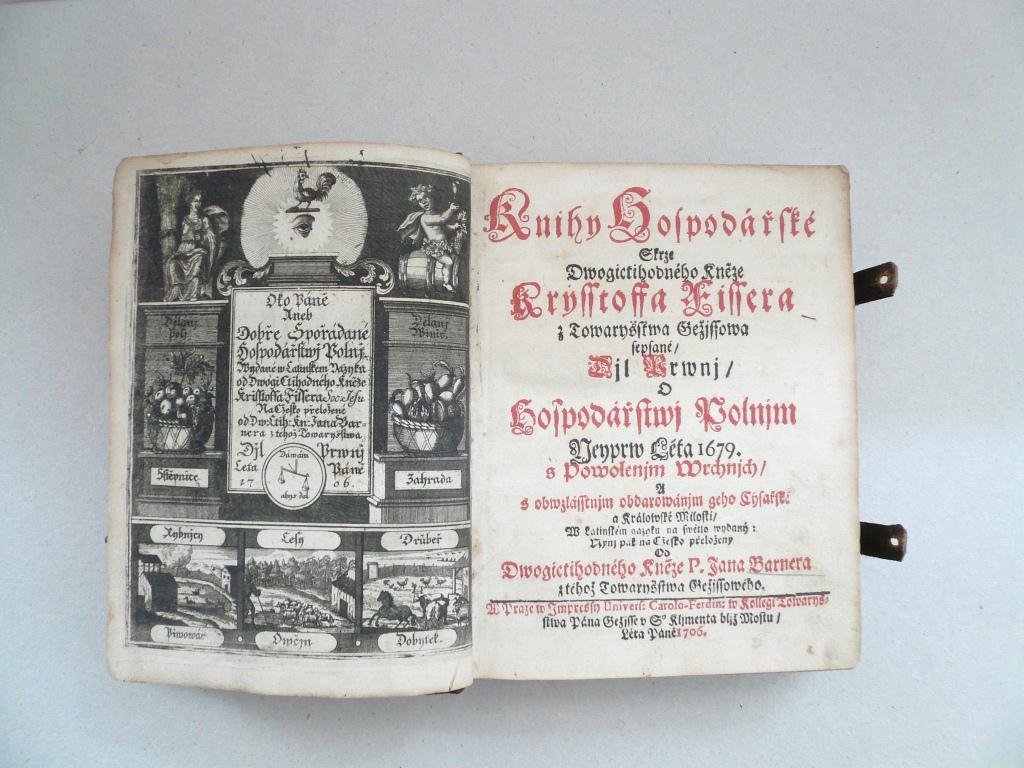 Dělanj
Polj.
Dělanj
Winic.
Oko Páně
Aneb
Dobře Spořádané
Hospodářstwj Polnj.
Wydané w Latinskem Yazyku
od Dwogi Ctihodneho Kněze
Kristoffa Fissera Soc: Jesu
Na Cžesko přeložené
od Dw: Ctih: Kn: Jana Bar-
nera z téhož Towaryšstwa
Djl Prwnj
Leta Páně
17 06.
Dáwám
abys dal
Sstěpnice
Zahrada
Rybnjcy
Lesy
Drůbež
Piwowár
Owčjn
Dobytek.
Knihy Hospodářské
Skrze
Dwogictihodného Kněze
Krysstoffa Fissera
z Towaryšstwa Gežissowa
sepsané/
Djl Prwnj/
O
Hospodářstwj Polnjm
Neyprw Léta 1679.
s Powolenjm Wrchnjch/
A
s obwzlásstnjm obdarowánjm geho Cýsařské
a Králowské Milosti/
W Latinském yazyku na swětlo wydaný:
Nynj pak na Cžesko přeložený
Od
Dwogictihodného Kněze P. Jana Barnera
z téhož Towaryšstwa Gežissowého.
W Praze w Impressy Univers: Carolo-Ferdin: w Kollegi Towarys-
stwa Pána Gežisse v Sº Klimenta bljž Mostu/
Léta Páně 1706.